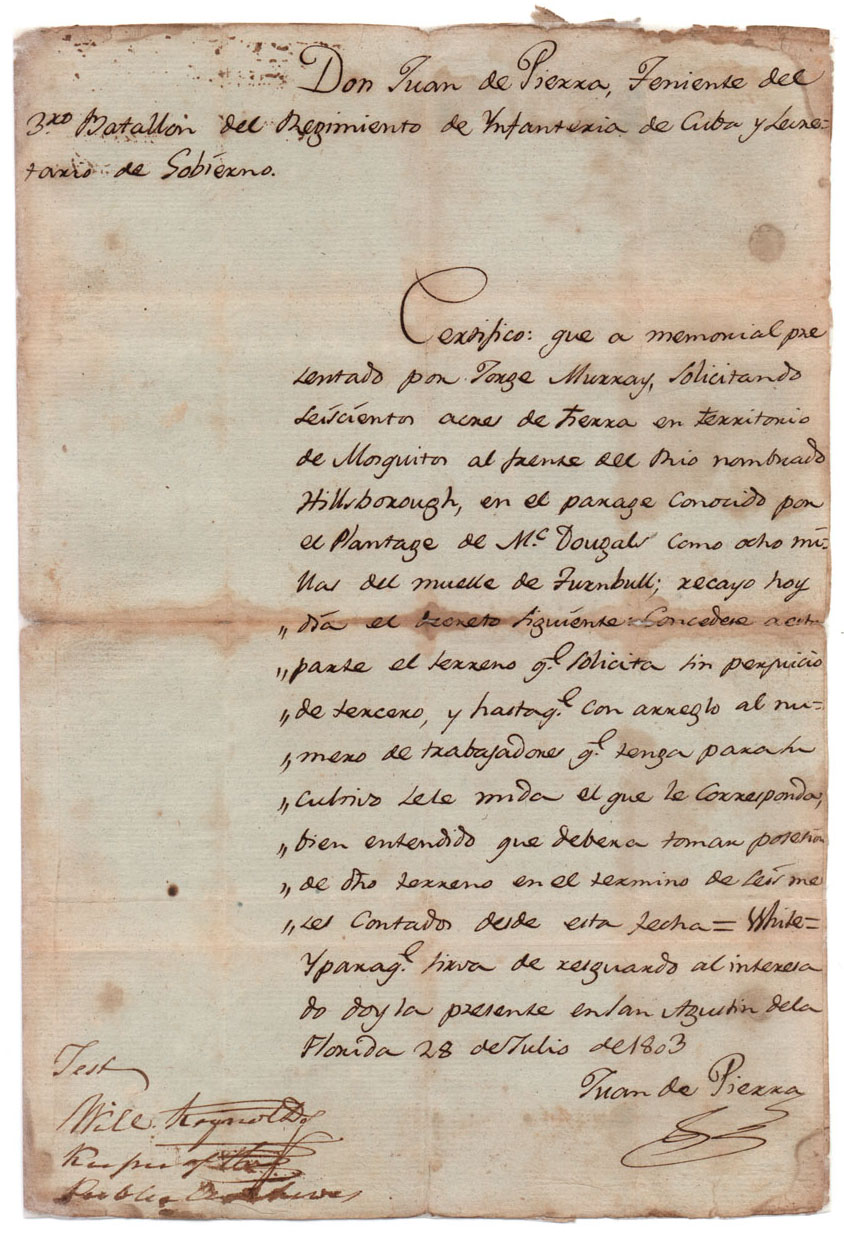 Don Juan de Pierra, Teniente del
3.ro Batallon del Regimiento de Ynfanteria de Cuba y Secre=
tario de Gobierno.
Certifico: que a memorial pre
sentado por Jorge Murray, solicitando
seiscientos acres de tierra en territorio
de Mosquitos al frente del Rio nombrado
Hillsborough, en el parage conocido por
el Plantage de Mc Dougals como ocho mi-
llas del muelle de Turnbull; recayo hoy
„ dia el decreto siguiente: Concedese a esta
„ parte el terreno q.e solicita sin perjuicio
„ de tercero, y hasta q.e con arreglo al nu=
„ mero de trabajadores q.e tenga para su
„ cultivo se le mida el que le corresponda;
„ bien entendido que debera tomar posesion
„ de dho terreno en el termino de seis me
„ ses contados desde esta fecha = White=
Y para q.e sirva de resguardo al interesa
do doy la presente en San Agustin de la
Florida 28 de Julio de 1803
Juan de Pierra
Test
Will Reynolds
Keeper of the
Public Archives